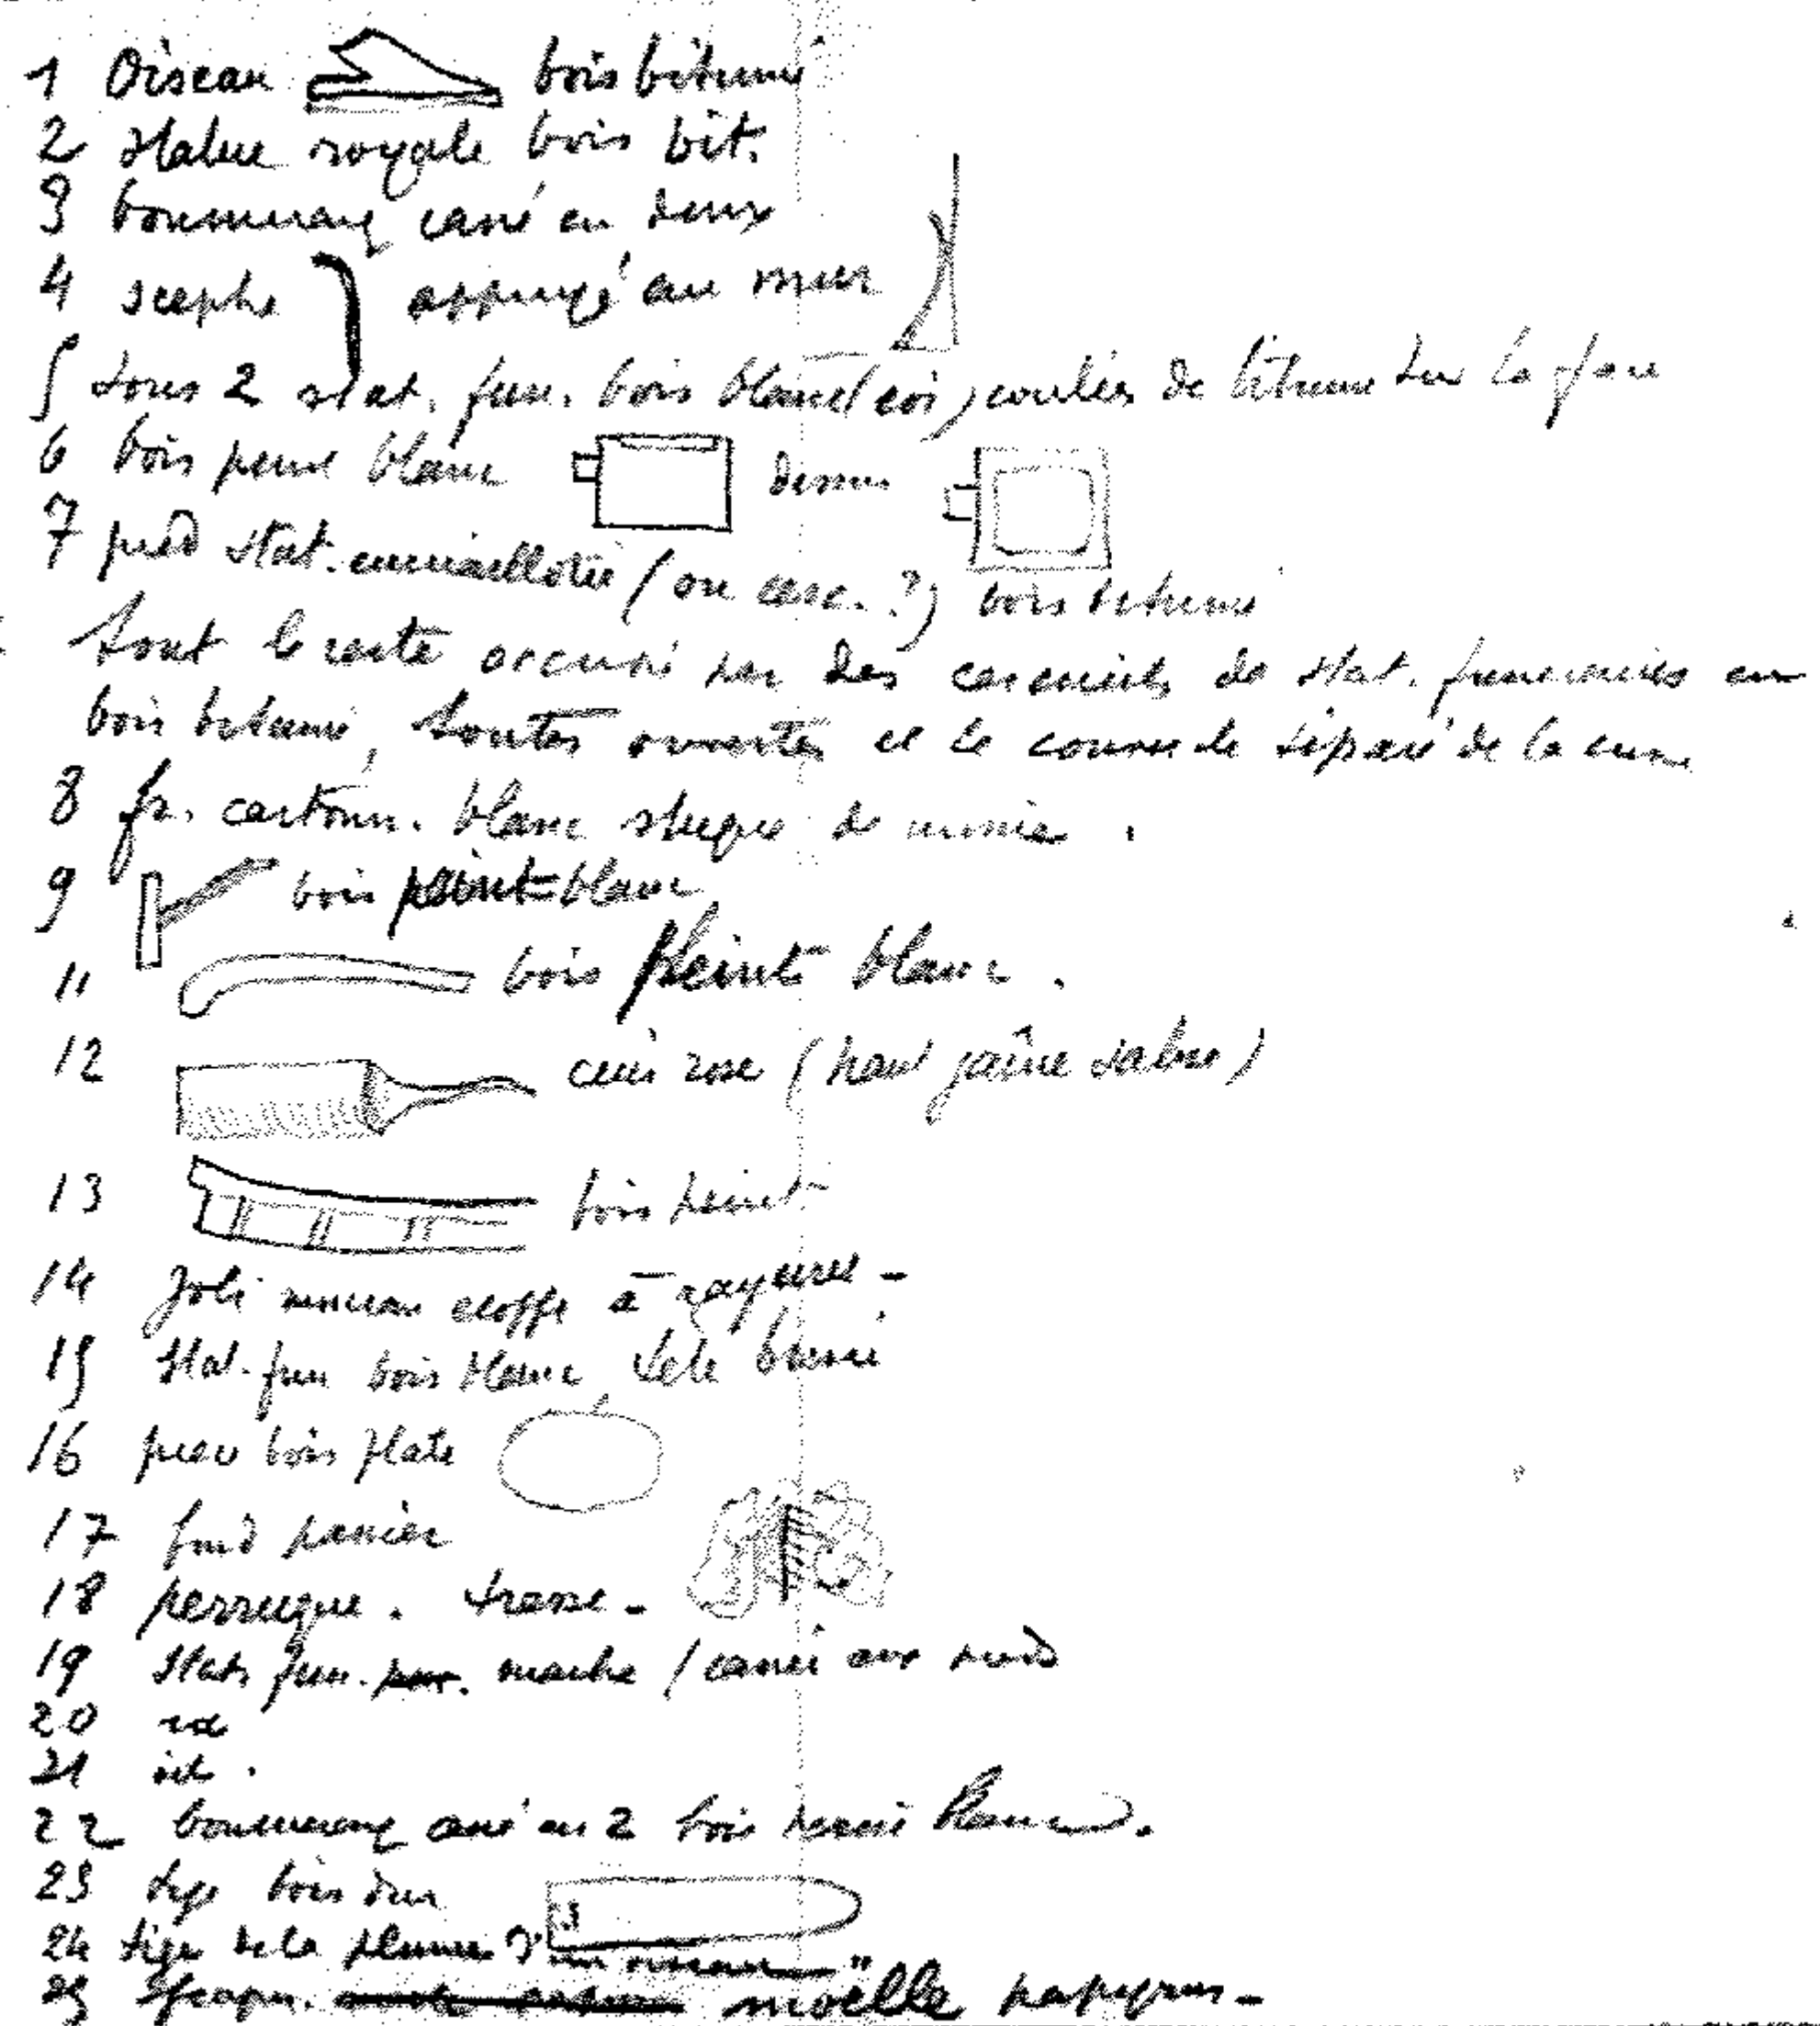 1 Oiseau bois bitumé
2 Statue royale bois bit.
3 boumerang cassé en deux
4 sceptre appuyé au mur
5 Sous 2 stat. fun. bois blanc (roi) coulées de bitume sur la face
6 bois peint blanc dessus
7 pied stat. emmaillotée (ou cerc. ?) bois bitumé
tout le reste occupé par des cercueils de stat. funéraires en
bois bitumé, toutes ouvertes et le couvercle séparé de la cuve
8 fr. cartonn. blanc stuqué de momie.
9 bois peint blanc
11 bois peint blanc.
12 cuir rose (haut gaîne sabre)
13 bois peint
14 Joli morceau étoffe à rayures -
15 Stat. fun bois blanc, tête bitumé
16 bois plate
17 fond panier
18 perruque. tresse -
19 Stat. fun. marbre / cassée aux
20 id
21 id.
22 boumerang cassé en 2 bois peint blanc.
23 tige bois dur
24 tige de la plume d'un oiseau
25 moëlle papyrus -